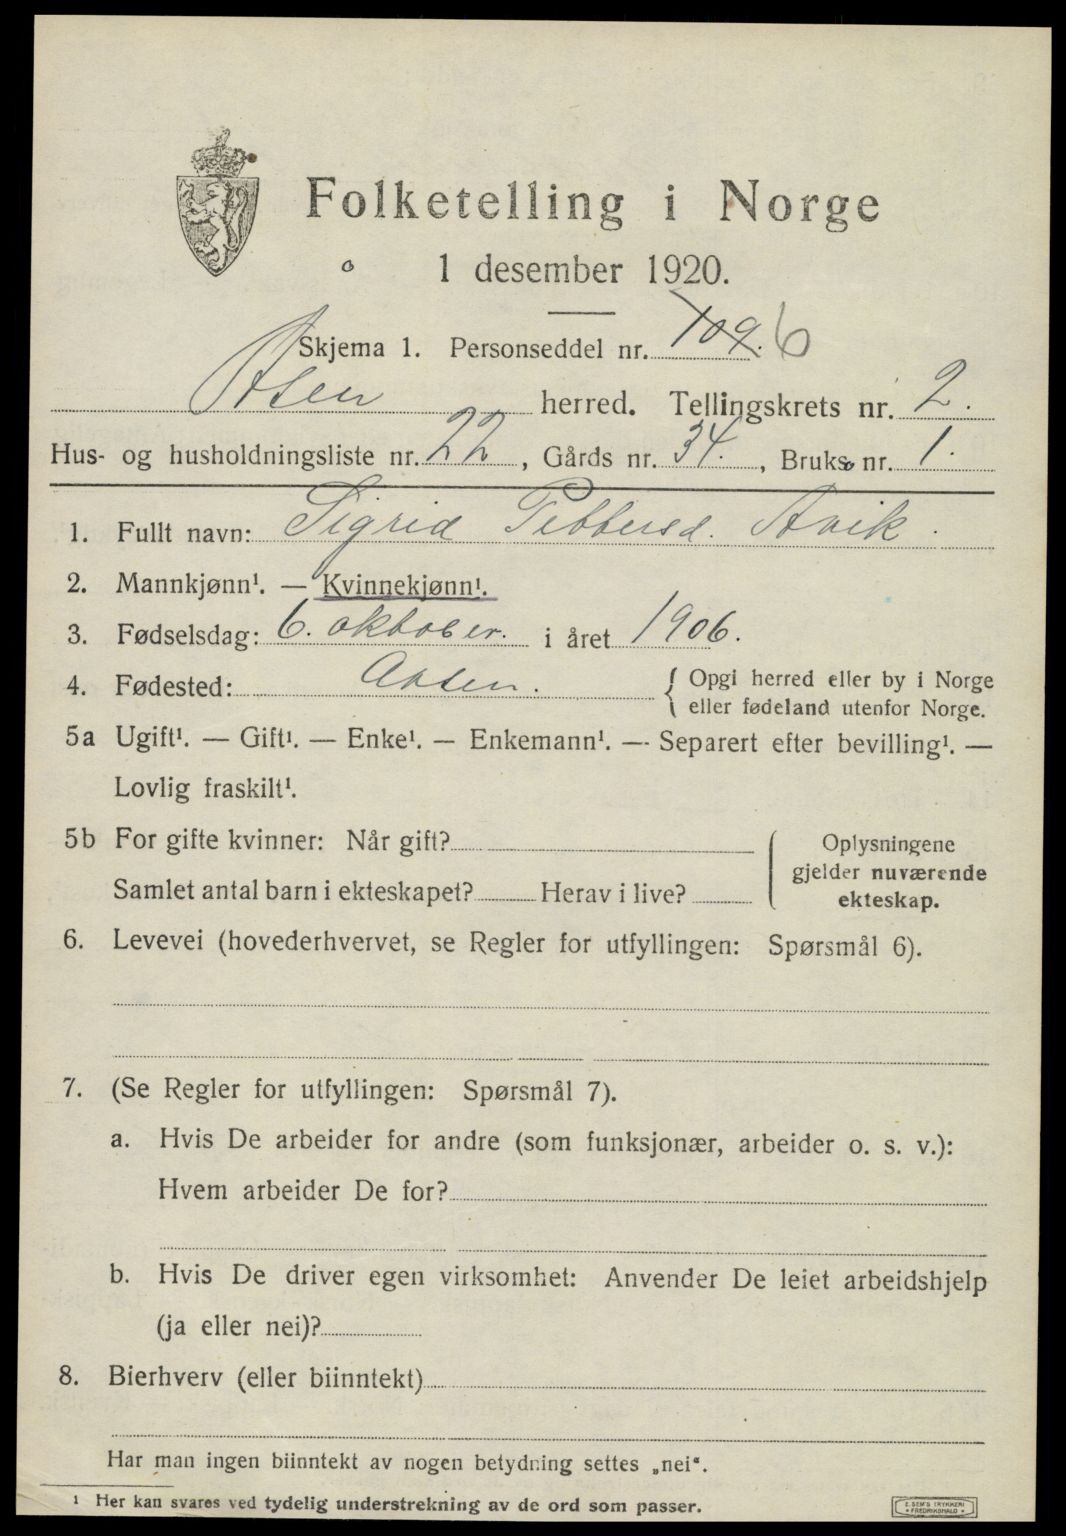 Folketelling i Norge
1 desember 1920.
Skjema 1. Personseddel nr. 109. 6
Åsen herred. Tellingskrets nr. 2.
Hus- og husholdningsliste nr. 22, Gårds nr. 34., Bruks nr. 1.
1. Fullt navn: Sigrid Pettersd. Avik.
2. Mannkjønn¹. — Kvinnekjønn¹.
3. Fødselsdag: 6. oktober. i året 1906.
4. Fødested: Aasen. { Opgi herred eller by i Norge
eller fødeland utenfor Norge.
5a Ugift¹. — Gift¹. — Enke¹. — Enkemann¹. — Separert efter bevilling¹. —
Lovlig fraskilt¹.
5b For gifte kvinner: Når gift?
Samlet antal barn i ekteskapet? Herav i live?
Oplysningene
gjelder nuværende
ekteskap.
6. Levevei (hovederhvervet, se Regler for utfyllingen: Spørsmål 6).
7. (Se Regler for utfyllingen: Spørsmål 7).
a. Hvis De arbeider for andre (som funksjonær, arbeider o. s. v.):
Hvem arbeider De for?
b. Hvis De driver egen virksomhet: Anvender De leiet arbeidshjelp
(ja eller nei)?
8. Bierhverv (eller biinntekt)
Har man ingen biinntekt av nogen betydning settes „nei“.
¹ Her kan svares ved tydelig understrekning av de ord som passer.
E. SEM'S TRYKKERI
FREDRIKSHALD